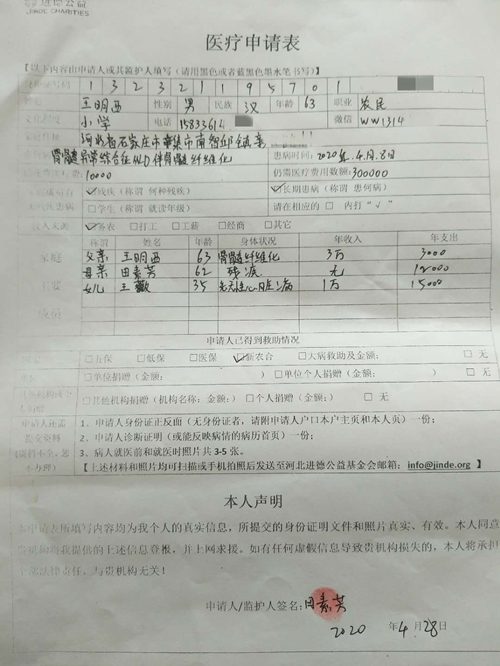 进德公益
JINDE CHARITIES
医疗申请表
【以下内容由申请人或其监护人填写(请用黑色或者蓝黑色墨水笔书写)】
身份证号码 1 3 2 3 2 1 1 9 5 7 0 1
王明西 性别 男 民族 汉 年龄 63 职业 农民
小学 电话 15833614 微信 WW1314
河北省石家庄市 集市南智邱镇
骨髓异常综合征 伴骨髓纤维化 患病时间: 2020年.4月.8日
10000 仍需医疗费用数额: 300000
☑残疾(称谓 何种残疾) ☑长期患病(称谓 患何病)
□学生(称谓 就读年级) 请在相应的 □ 内打“√”
☑务农 □打工 □工薪 □经商 □其它
称谓 姓名 年龄 身体状况 年收入 年支出
家庭 父亲 王明西 63 骨髓纤维化 3万 3000
母亲 田素芳 62 残疾 无 12000
女儿 王 35 先天性心脏病 1万 15000
成员
申请人已得到救助情况
□五保 □低保 □医保 ☑新农合 □大病救助及金额: □ 无
□单位捐赠(金额: ) □单位个人捐赠(金额: ) □ 无
□其他机构捐赠(机构名称: 金额: ) □个人捐赠(金额: ) □ 无
申请人还需 1、申请人身份证正反面(无身份证者,请附申请人户口本户主页和本人页)一份;
2、申请人诊断证明(或能反映病情的病历首页)一份;
3、病人就医前和就医时照片共 3-5 张。
不办理) 【上述材料和照片均可扫描或手机拍照后发送至河北进德公益基金会邮箱: info@jinde.org 】
本人声明
本申请表所填写内容均为我个人的真实信息,所提交的身份证明文件和照片真实、有效。本人同意
贵机构将我提供的上述信息登报,并上网求援。如有任何虚假信息导致贵机构损失的,本人将承担
全部法律责任,与贵机构无关!
申请人/监护人签名: 田素芳
2020 年 4 月 28 日